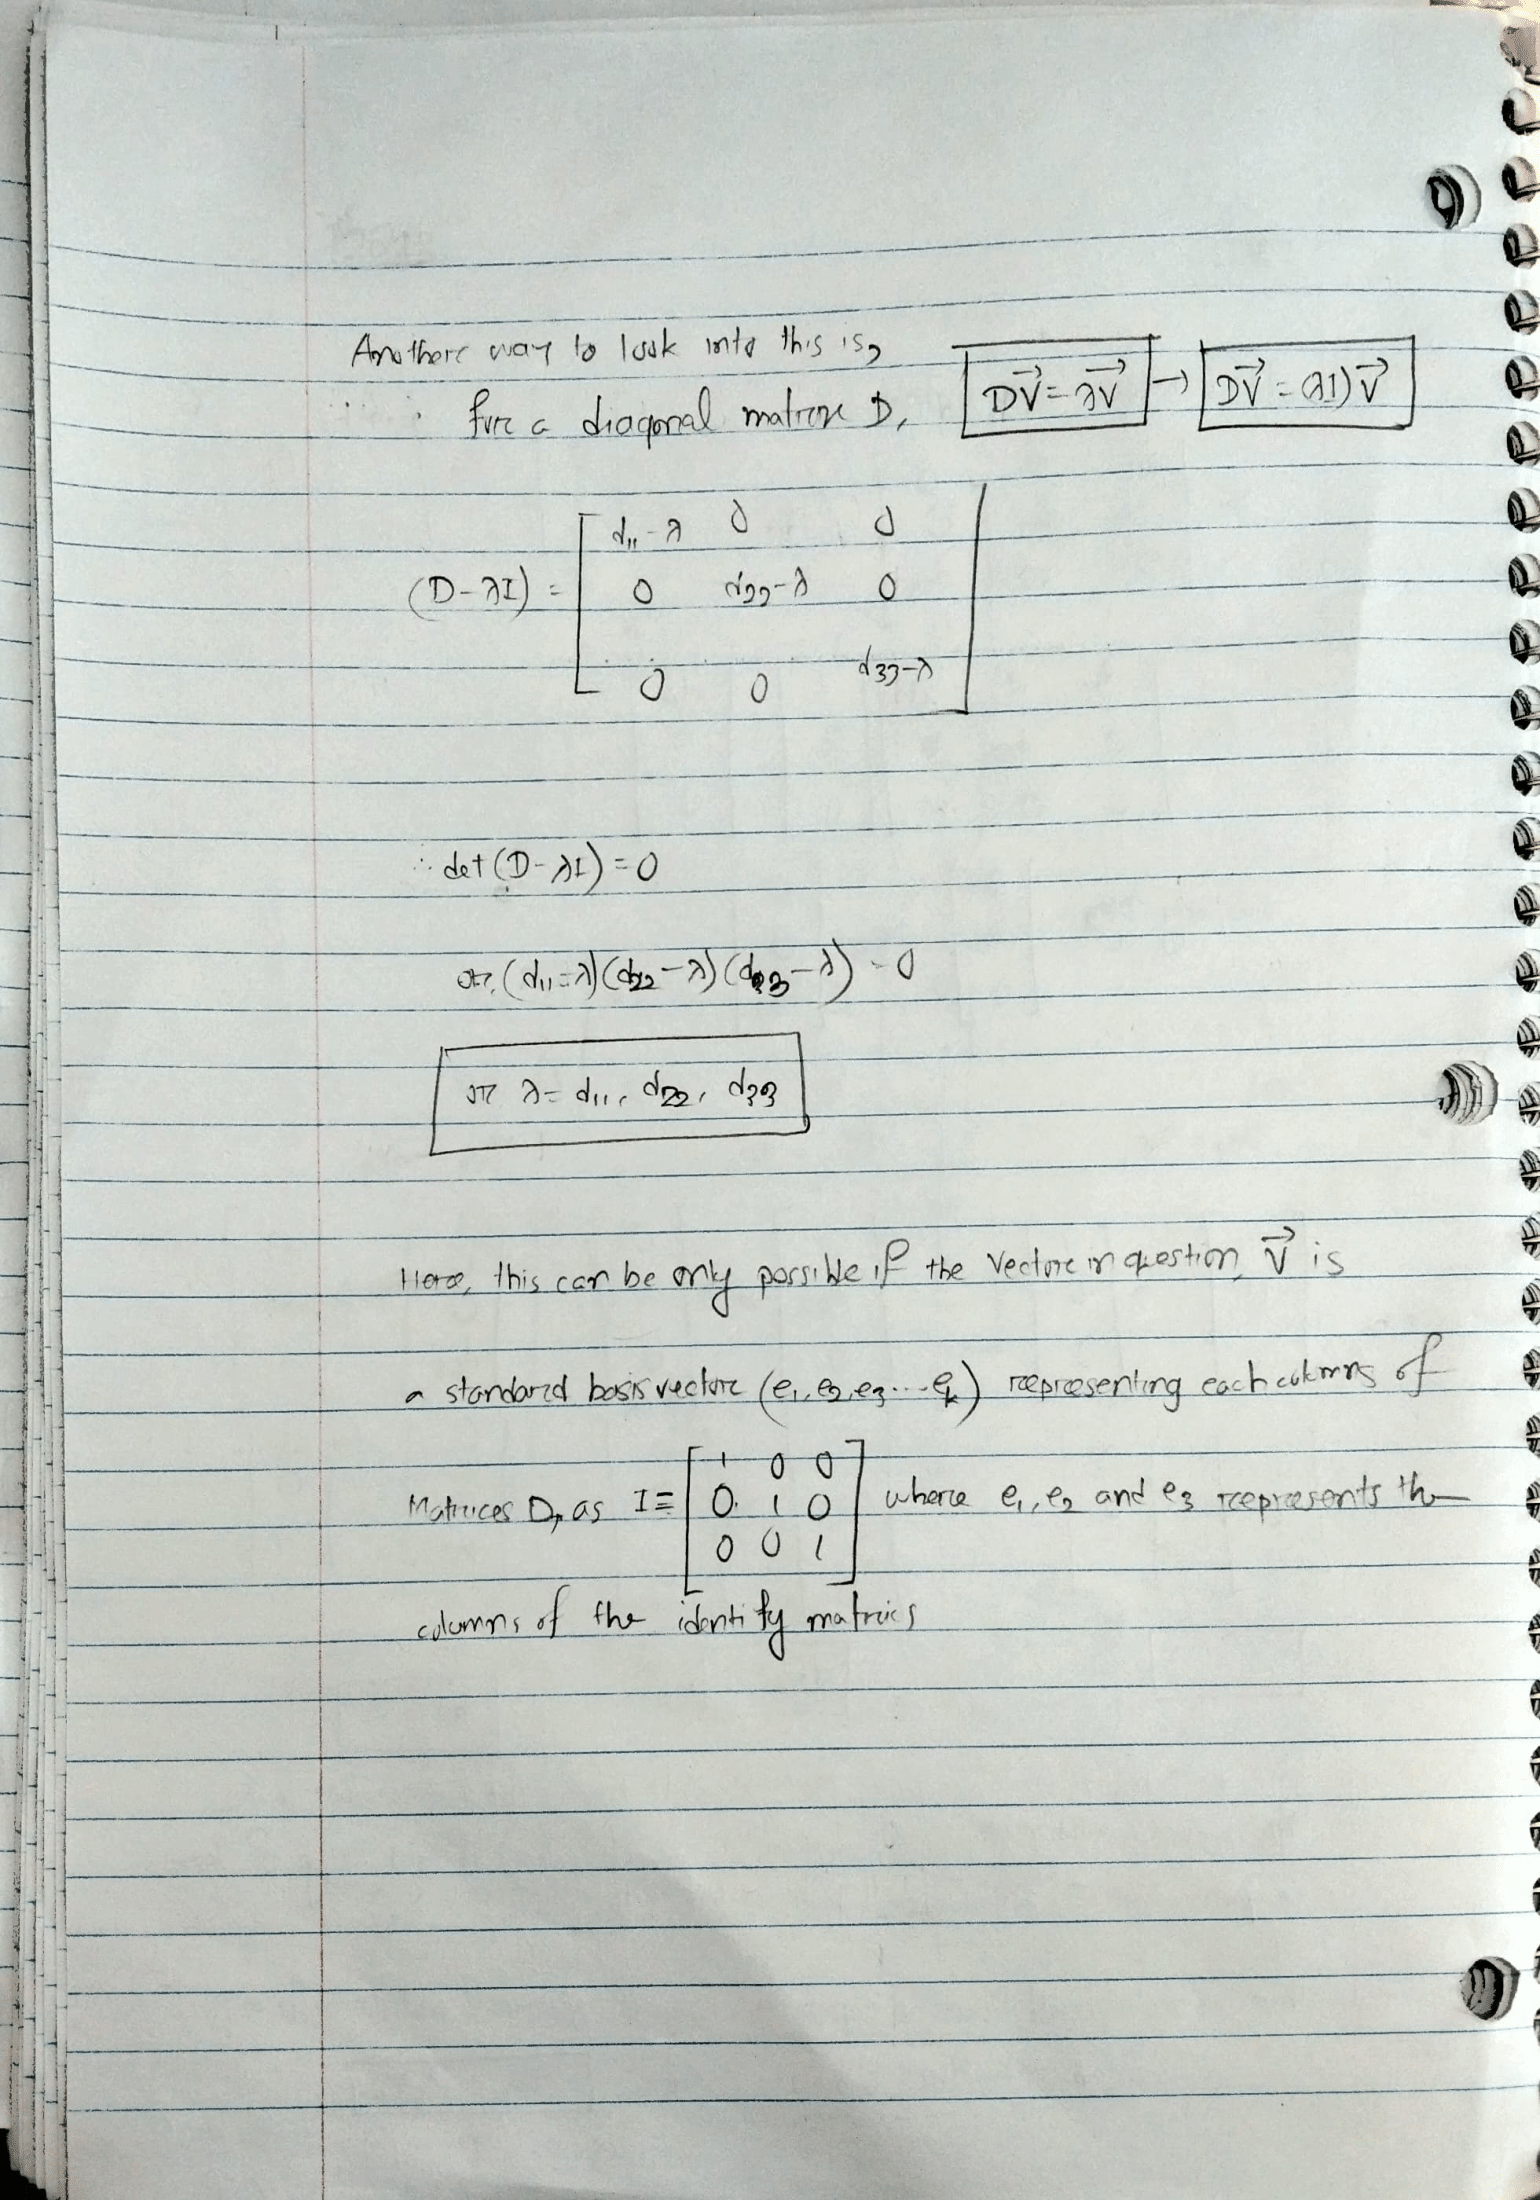 Another way to look into this is,
for a diagonal matrix D, DV⃗ = λV⃗ → DV⃗ = (λI)V⃗
d₁₁-λ 0 0
(D-λI) = 0 d₂₂-λ 0
0 0 d₃₃-λ
∴ det (D-λI) = 0
or, (d₁₁-λ)(d₂₂-λ)(d₃₃-λ) = 0
or λ = d₁₁, d₂₂, d₃₃
Here, this can be only possible if the vector in question, V⃗ is
a standard basis vector (e₁, e₂, e₃...eₖ) representing each columns of
Matrices D, as I = [1 0 0; 0 1 0; 0 0 1] where e₁, e₂ and e₃ represents the
columns of the identity matrics